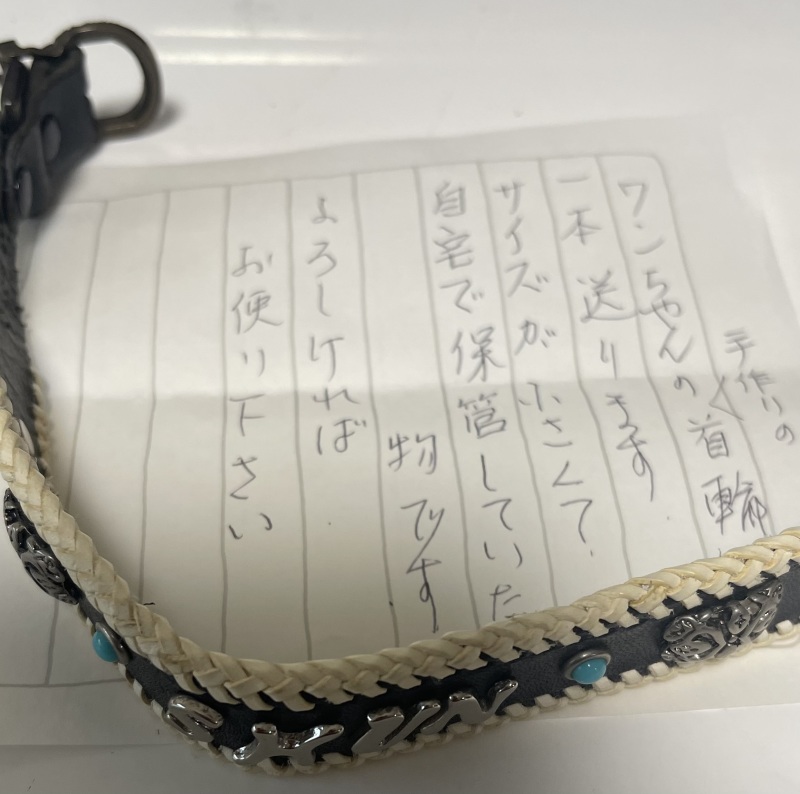 ワンちゃんの手作りの首輪
一本送ります
サイズが小さくて、
自宅で保管していた
物です
よろしければ
お使い下さい